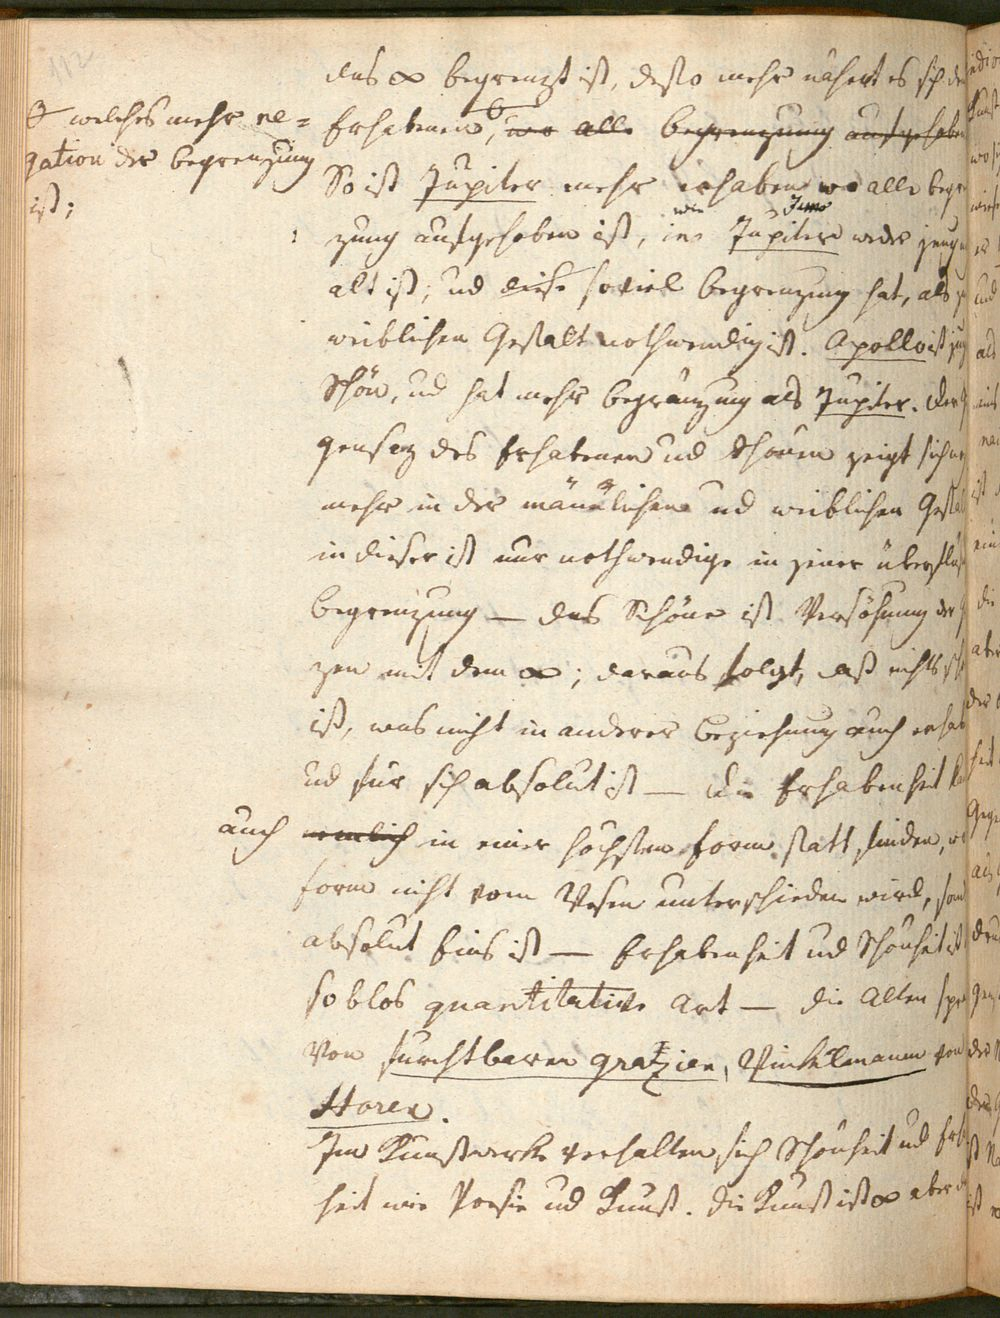 112
das ∞ begrenzt ist, desto mehr nähert es sich de
Erhabenen, wo alle begrenzung aufgehoben
& welches mehr ne=
gation der begrenzung
ist;
So ist Jupiter mehr erhaben wo alle begre
zung aufgehoben ist, wie Juno Jupiter weder jung
alt ist; ud diese soviel begrenzung hat, als
weiblichen Gestalt nothwendig ist. Apollo ist jug
schön, ud hat mehr begränzung als Jupiter. der
gensaz des Erhabenen ud schönen zeigt sich
mehr in der mänlichen ud weiblichen Gestal
in dieser ist nur nothwendige in jener überflüs
begrenzung — das Schöne ist Versöhnung der
zen mit dem ∞; daraus folgt, daß nichts
ist, was nicht in anderer beziehung auch erhab
ud für sich absolut ist — die Erhabenheit
auch in einer höchsten form statt finden,
form nicht vom Wesen unterschieden wird, son
absolut Eins ist — Erhabenheit ud Schönheit ist
so blos quantitative Art — die Alten spre
von furchtbaren Grazien, Winkelmann von
Horen.
Im Kunstwerke verhalten sich Schönheit ud Erha
heit wie Poesie ud Kunst. die Kunst ist ∞ aber